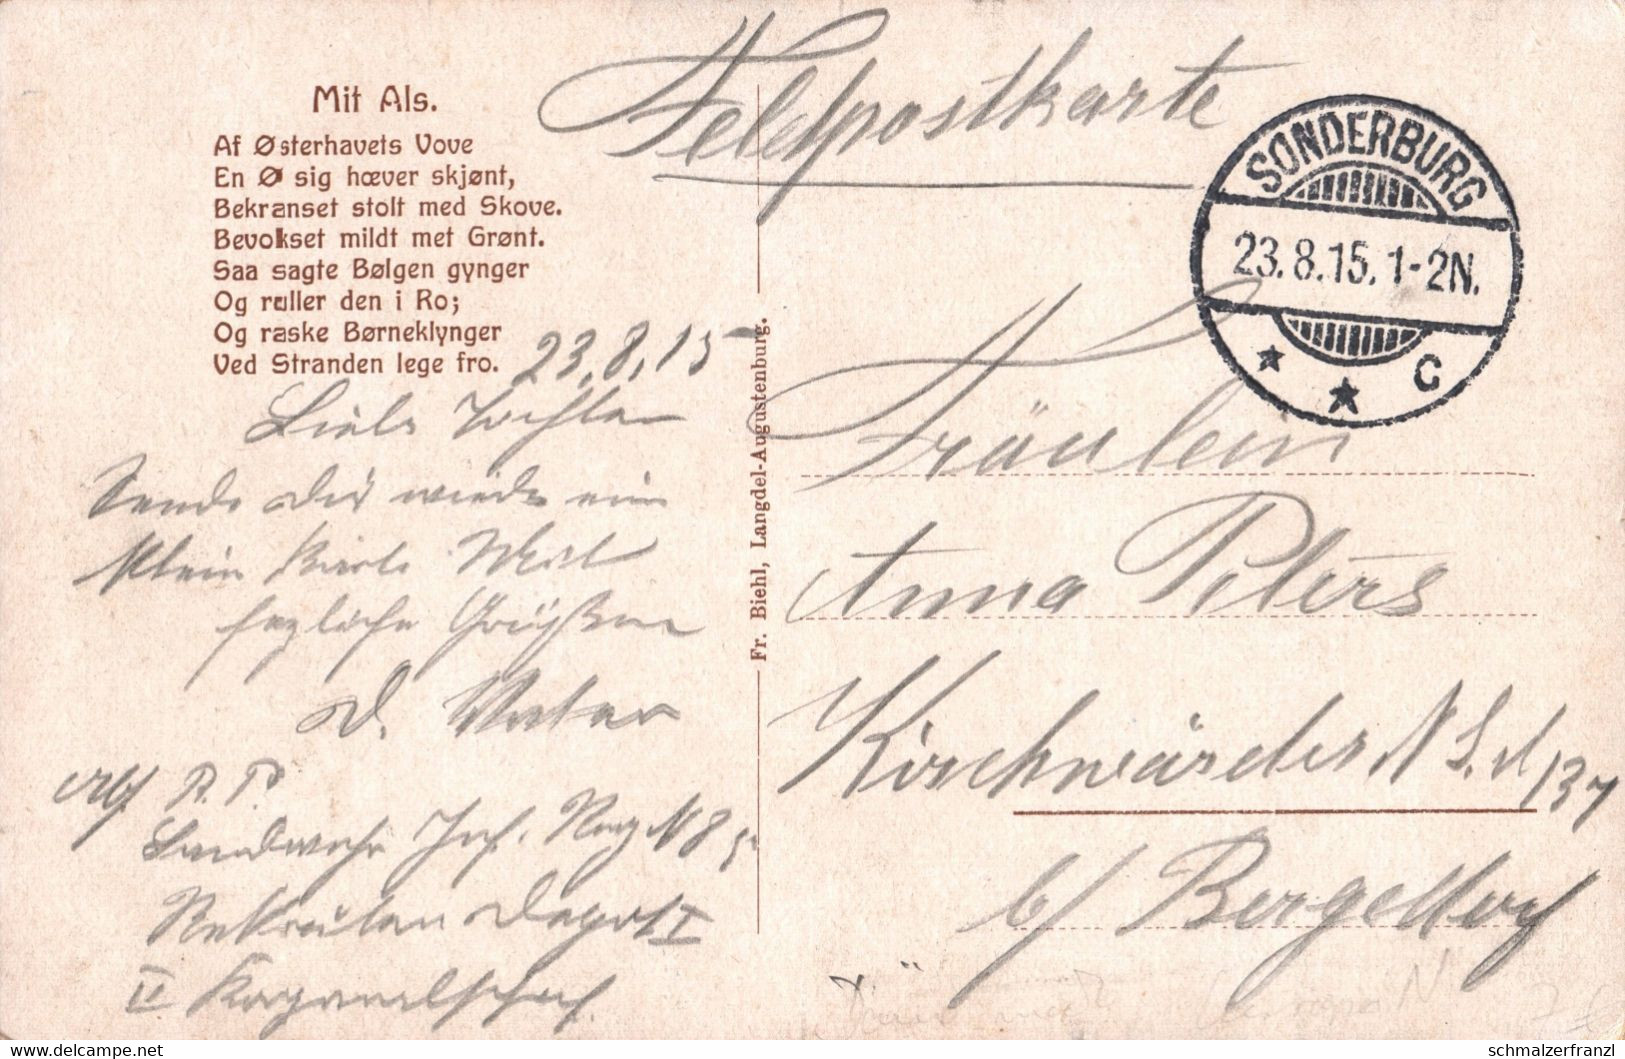 Mit Als.
Af Østerhavets Vove
En Ø sig hœver skjønt,
Bekranset stolt med Skove.
Bevokset mildt met Grønt.
Saa sagte Bølgen gynger
Og ruller den i Ro;
Og raske Børneklynger
Ved Stranden lege fro.
23.8.15
Liebe Tochter
Sende dir wieder ein
klein Karte Mit
herzliche Grüßen
D. Vater
Abs P. P.
Landwehr Inf. Reg N 85
Rekruten Depot I
II Korporalschaf.
Fr. Biehl, Langdel-Augustenburg.
Feldpostkarte
SONDERBURG
23.8.15. 1-2N.
* * C
Fräulein
Anna Peters
Kirchwärder N S. d 137
b/ Bergedorf
delcampe.net
schmalzerfranzl